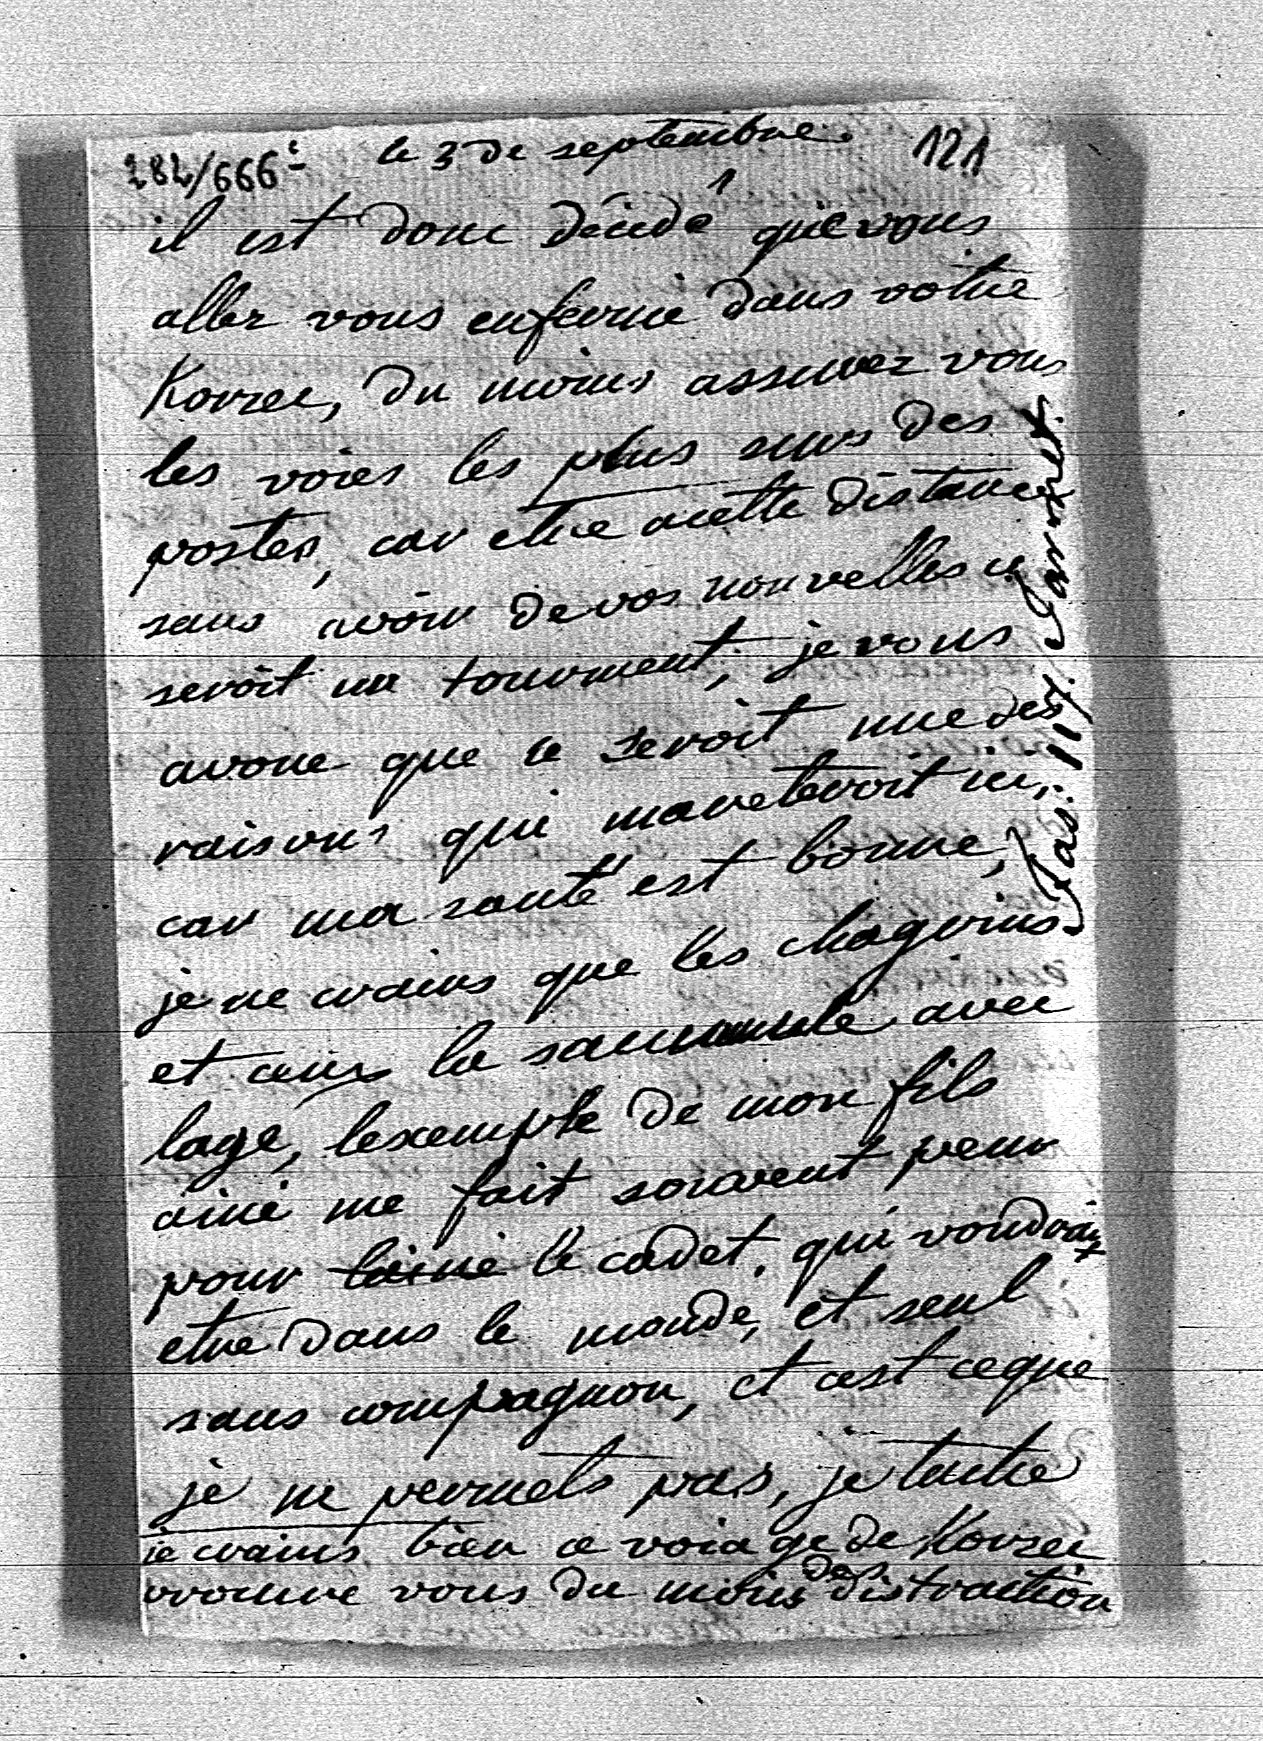 282/666⁵ le 3 de septembre. 121
il est donc décidé que vous
allez vous enfermé dans votre
Korzec, du moins assurez vous
les voies les plus surs des
postes, car etre acette distance
sans avoir de vos nouvelles ce
seroit un tourment, je vous
avoue que ce seroit une des
raisons qui mareteroit ici,
car ma santé est bonne,
je ne crains que les chagrins
et avec lage, lexemple de mon fils
ainé me fait souvent peur
pour lainé le cadet, qui voudroit
etre dans le monde, et seul
sans compagnon, et cest ceque
je ne permets pas, je tache
je crains bien ce voiage de Korzec
procure vous du moins des distraction